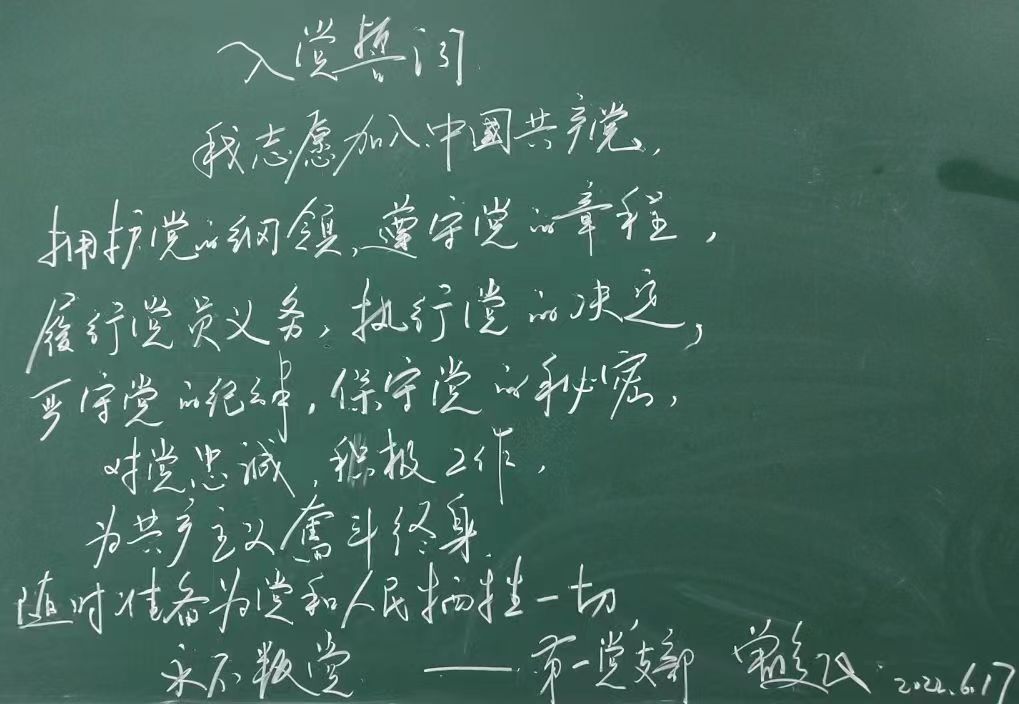 入党誓词
我志愿加入中國共产党,
拥护党的纲领,遵守党的章程,
履行党员义务,执行党的决定,
严守党的纪律,保守党的秘密,
对党忠诚,积极工作,
为共产主义奋斗终身
随时准备为党和人民牺牲一切
永不叛党 —— 第一党支部 2022.6.17